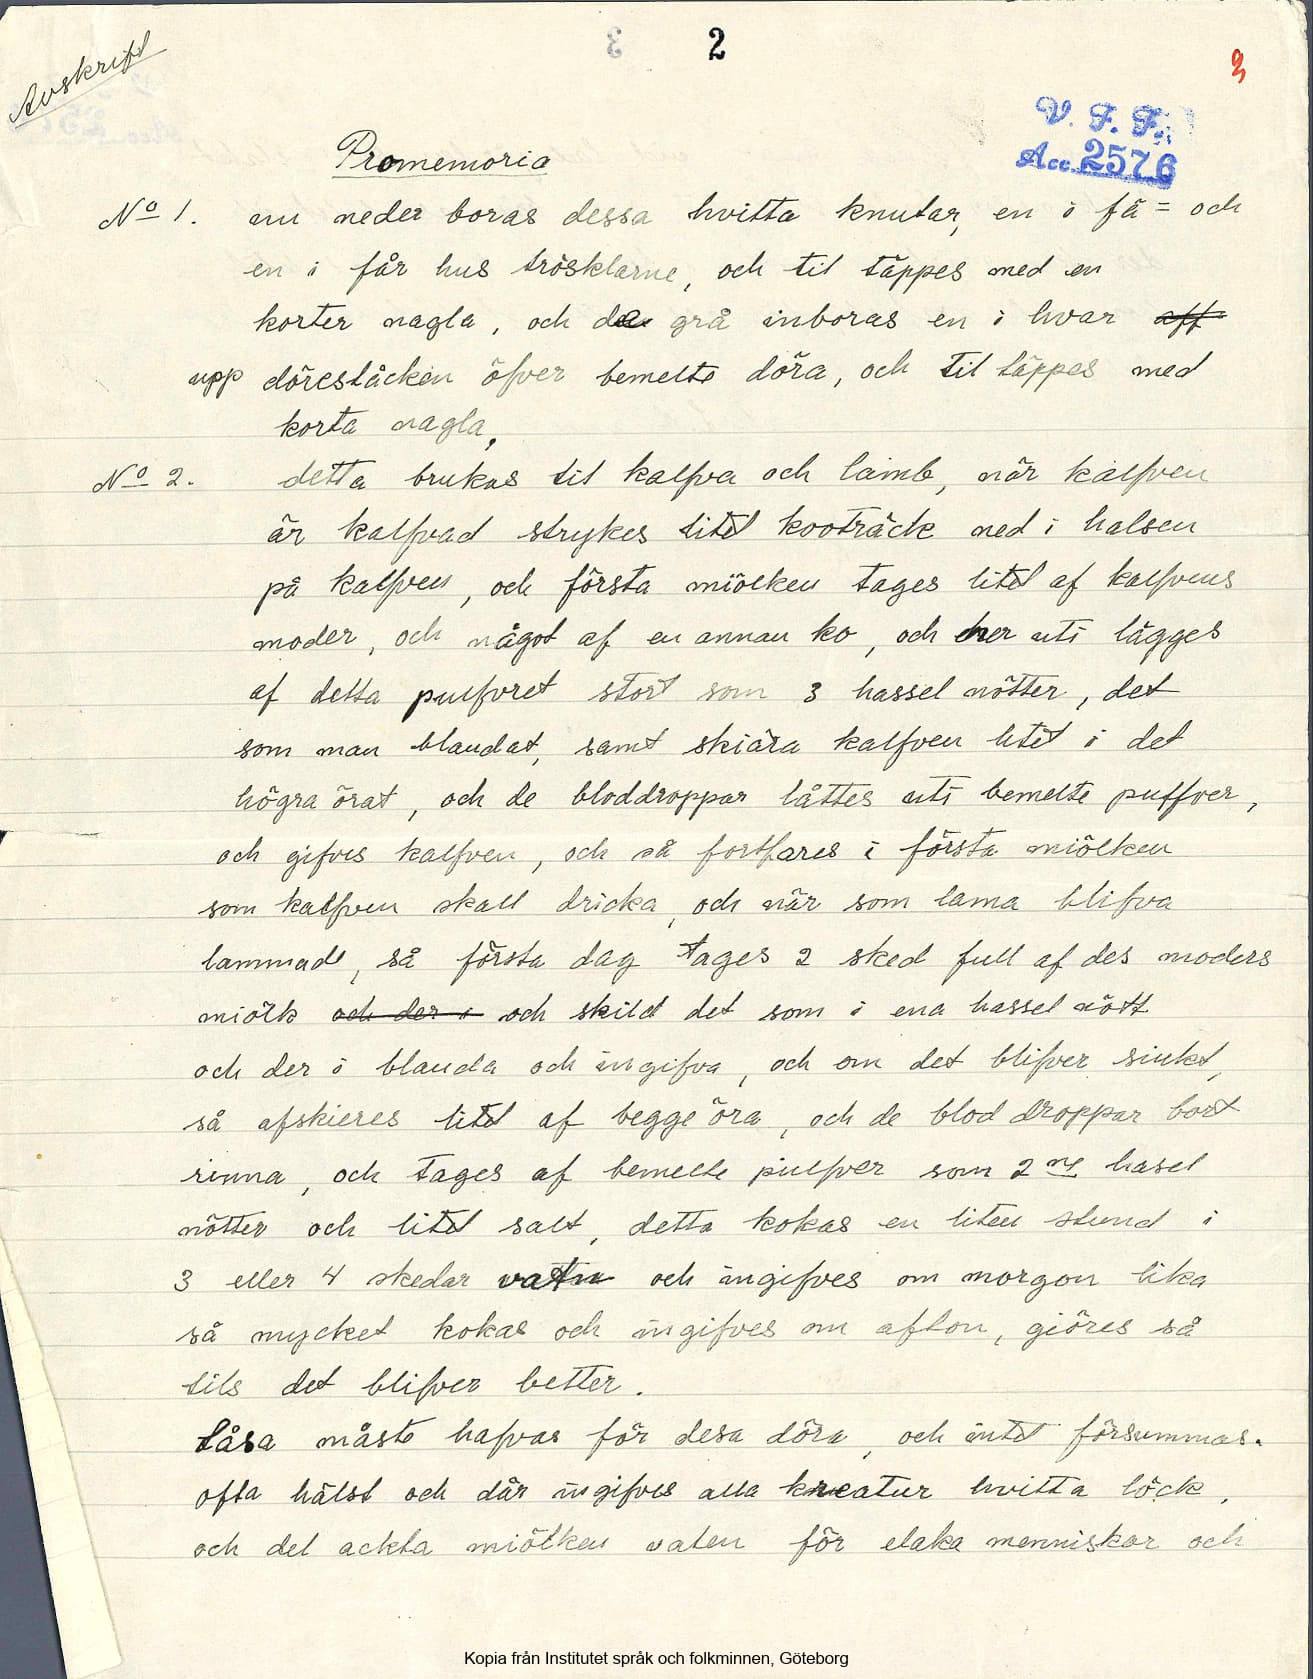 Avskrift
2
3
V. F. F.
Acc. 2576
Promemoria
No 1. nu neder boras dessa hvitta knutar, en i fä= och
en i får hus trösklarne, och til täppes med en
korter nagla, och de grå inboras en i hvar aff
upp dörestäcken öfver bemelte döra, och til täppes med
korta nagla,
No 2. detta brukas til kalfva och lamb, när kalfven
är kalfvad strykes litet kooträck ned i halsen
på kalfven, och första miölken tages litet af kalfvens
moder, och något af en annan ko, och her uti lägges
af detta pulfvret stort som 3 hassel nötter, det
som man blandat, samt skiära kalfven litet i det
högra örat, och de bloddroppar låttes uti bemelte puffver,
och gifves kalfven, och så fortfares i första miölken
som kalfven skall dricka, och när som lama blifva
lammade, så första dag tages 2 sked full af des moders
miölk och der i och skild det som i ena hassel nött
och der i blanda och ingifva, och om det blifver siukt,
så afskieres litet af begge öra, och de blod droppar bort
rinna, och tages af bemelte pulfver som 2ne hasel
nötter och litet salt, detta kokas en liten stund i
3 eller 4 skedar vatn och ingifves om morgon lika
så mycket kokas och ingifves om afton, giöres så
tils det blifver better.
Låsa måste hafvas för desa döra, och intet försummas.
ofta hälst och där ingifves alla kreatur hvitta löck,
och det ackta miölken vaten för elaka menniskor och
Kopia från Institutet språk och folkminnen, Göteborg